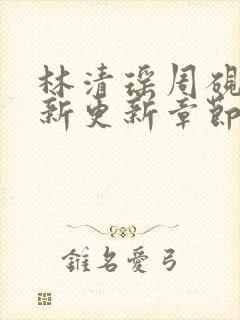 林清瑶周砚
新更新章節
錐名愛弓